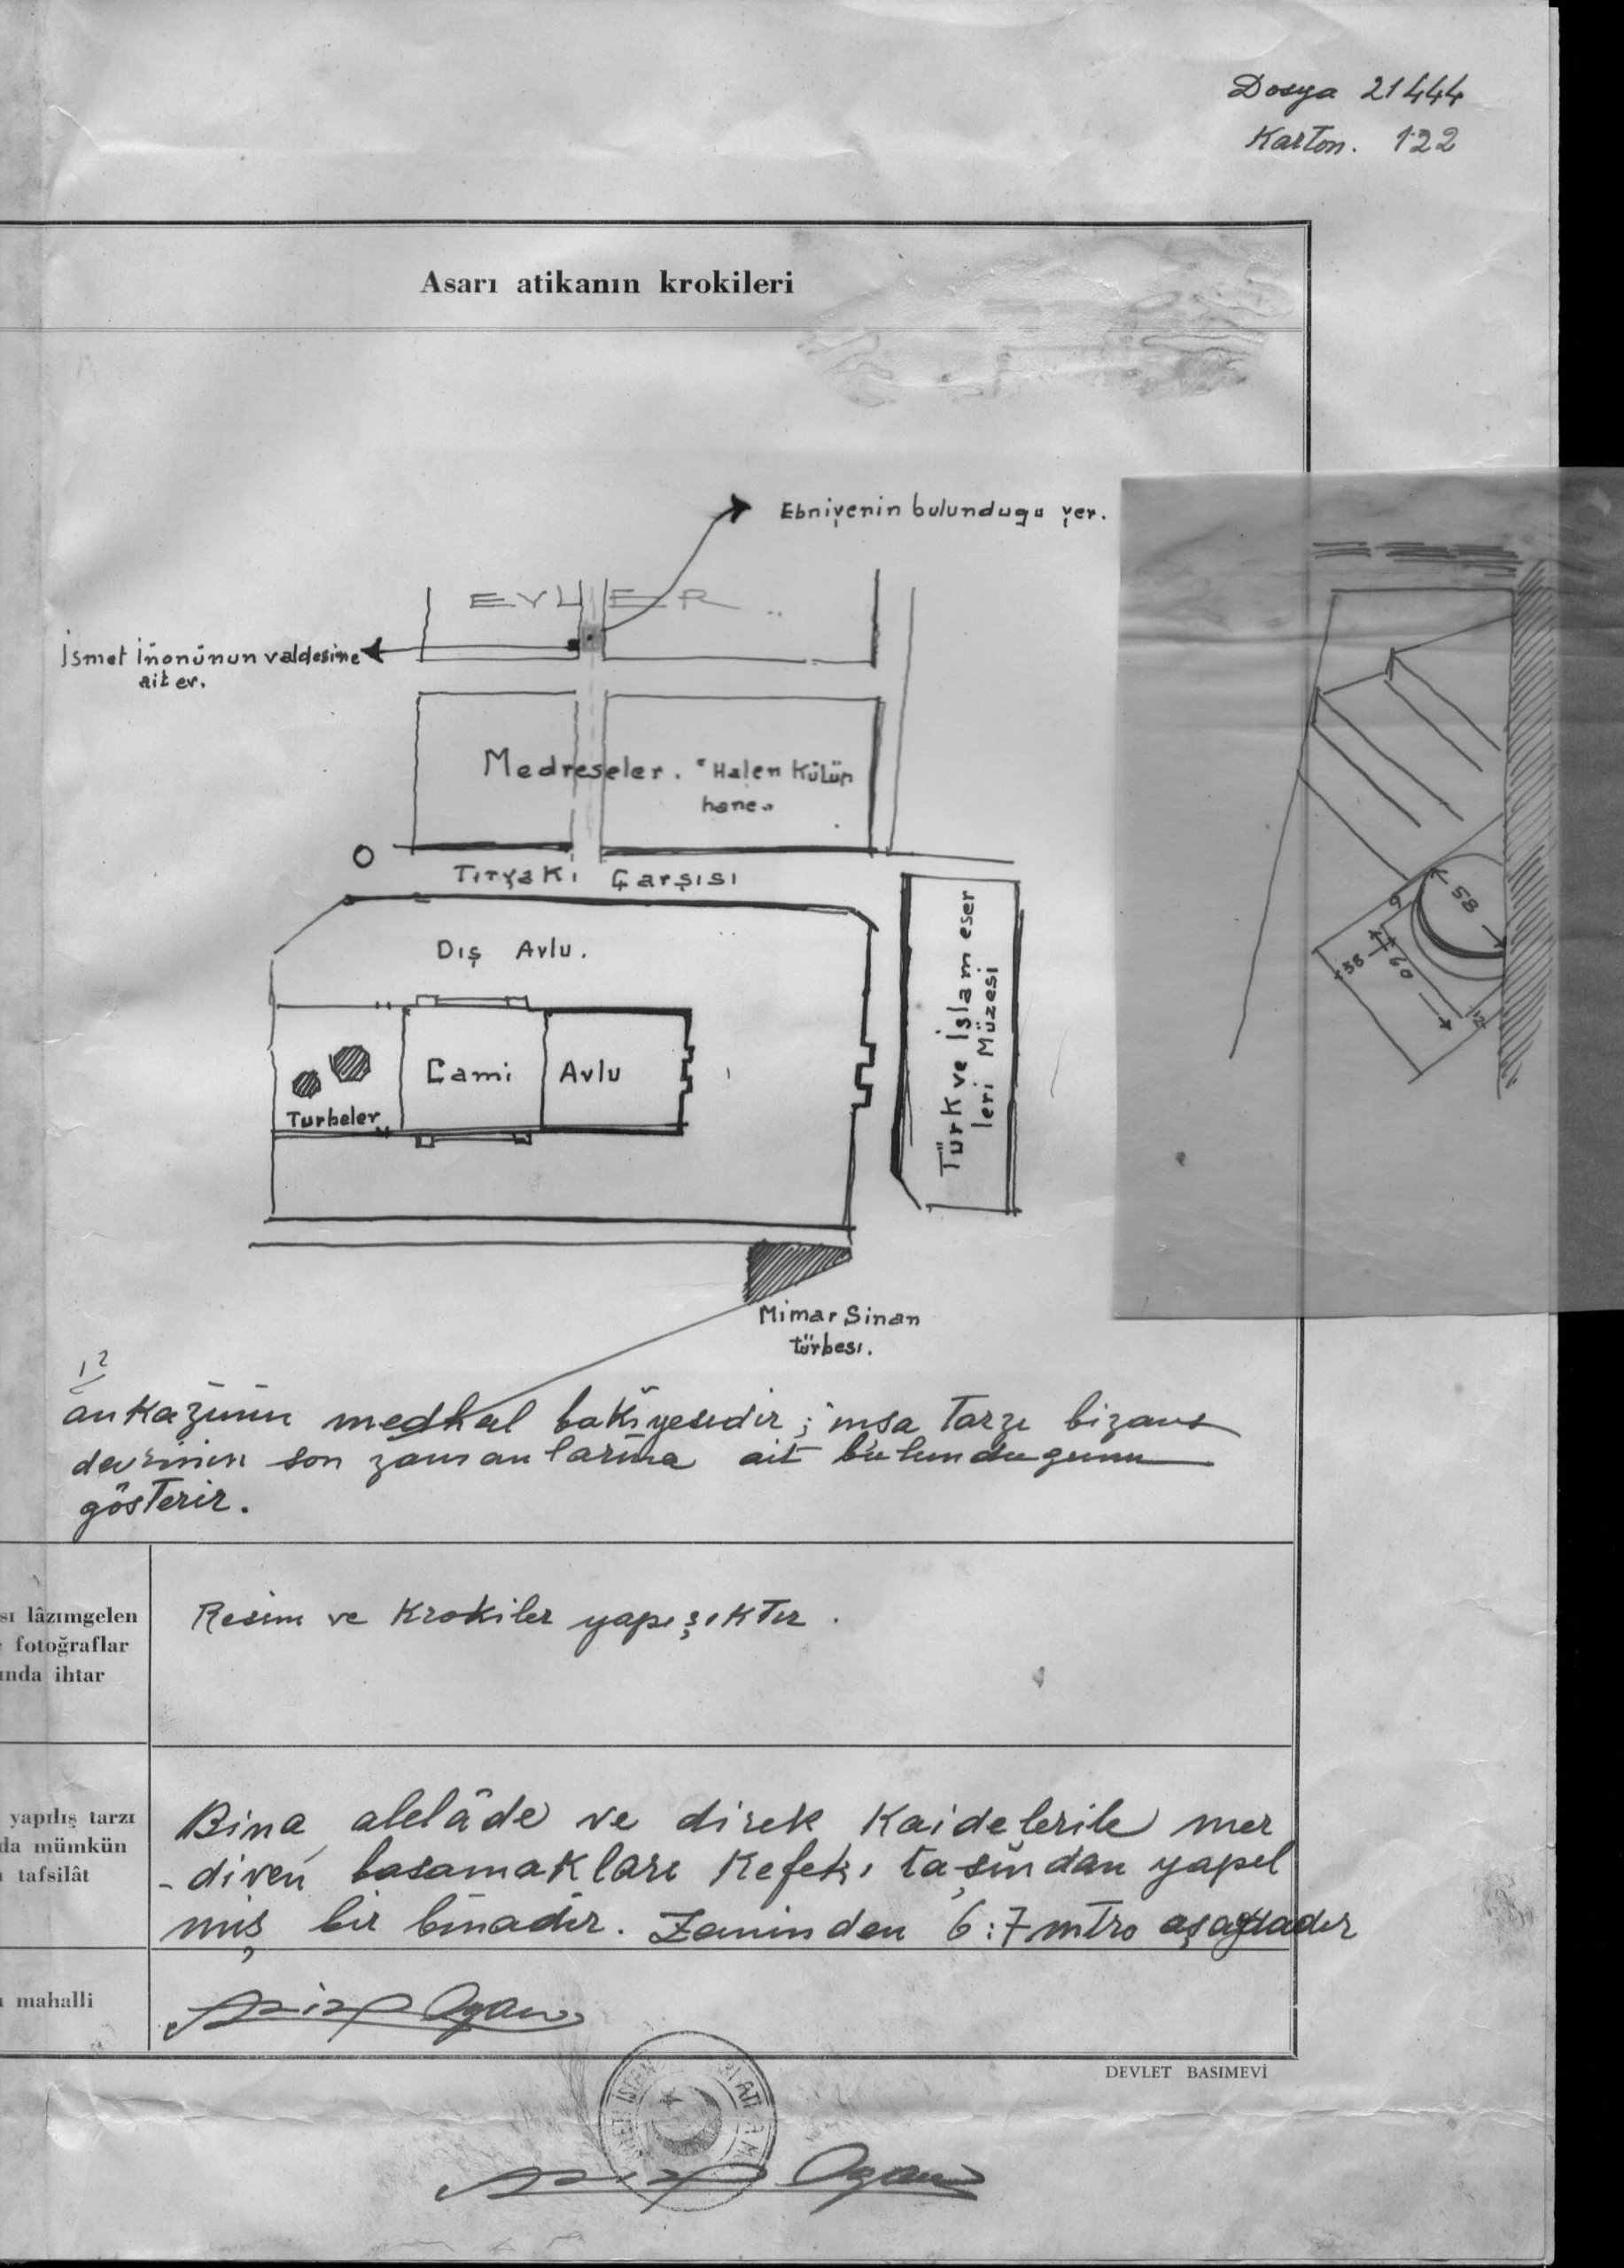 Dosya 21444
Karton. 122
Asarı atikanın krokileri
Ebniyenin bulundugu yer.
EVLER
İsmet İnonünun valdesine
ait ev.
Medreseler. "Halen Kütüp
hane"
Tiryaki Çarşısı
Dış Avlu.
Türk ve İslam eser
leri Müzesi
Cami
Avlu
Turbeler
Mimar Sinan
türbesi.
58
9
38
60
12
12
ankazının medhal bakiyesidir; inşa Tarzı bizans
devrinin son zamanlarına ait bulunduğunu
gösterir.
sı lâzımgelen
fotoğraflar
ında ihtar
Resim ve Krokiler yapışıkTır.
yapılış tarzı
da mümkün
tafsilât
Bina alelâde ve direk Kaidelerile mer
-diven basamakları Kefeki taşından yapıl
mış bir binadır. Zeminden 6:7 mtro aşağıdadır
mahalli
Aziz Ogan
DEVLET BASIMEVİ
Aziz Ogan